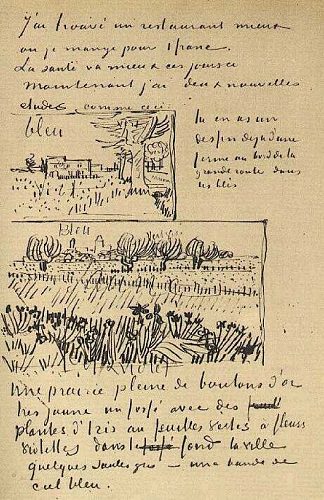 J'ai trouvé un restaurant mieux
ou je mange pour 1 franc.
La santé va mieux ces jours ci
maintenant j'ai deux nouvelles
etudes comme ceci:
bleu
tu en as un
dessin deja d'une
ferme au bord de la
grande route dans
les blés
Bleu
Une prairie pleine de boutons d'or
tres jaune un fossé avec des
plantes d'Iris aux feuilles vertes à fleurs
violettes dans le fond la ville
quelques saules gris – une bande de
ciel bleu.